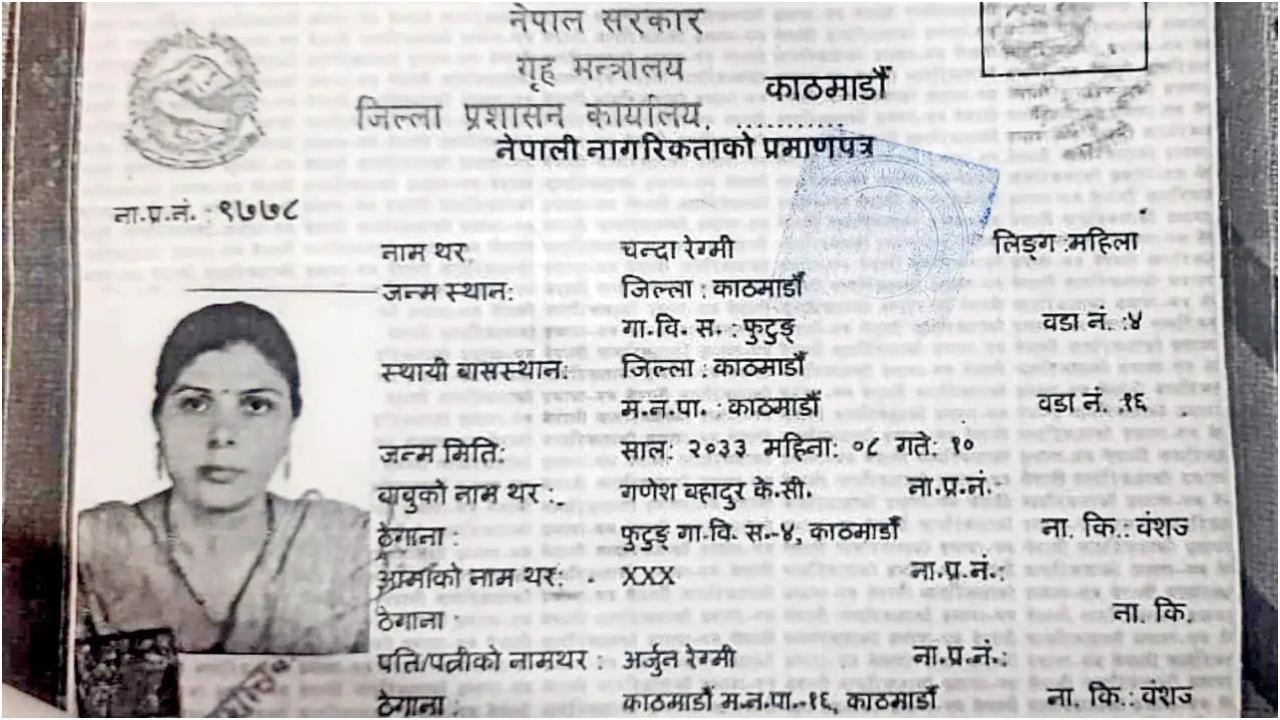 नेपाल सरकार
गृह मन्त्रालय
जिल्ला प्रशासन कार्यालय, काठमाडौँ
नेपाली नागरिकताको प्रमाणपत्र
ना.प्र.नं. : ९७७८
नाम थर चन्दा रेग्मी लिङ्ग :महिला
जन्म स्थान: जिल्ला : काठमाडौँ
गा.वि. स. : फुटुङ् वडा नं. :४
स्थायी बासस्थान: जिल्ला : काठमाडौँ
म.न.पा. : काठमाडौँ वडा नं. .१६
जन्म मिति: साल: २०३३ महिना: ०८ गते: १०
बाबुको नाम थर : गणेश बहादुर के.सी. ना.प्र.नं.:
ठेगाना : फुटुङ् गा.वि. स.-४, काठमाडौँ ना. कि.: वंशज
आमाको नाम थर: XXX ना.प्र.नं.:
ठेगाना : ना. कि.
पति/पत्नीको नामथर : अर्जुन रेग्मी ना.प्र.नं.:
ठेगाना : काठमाडौँ म.न.पा.-१६, काठमाडौँ ना. कि.: वंशज